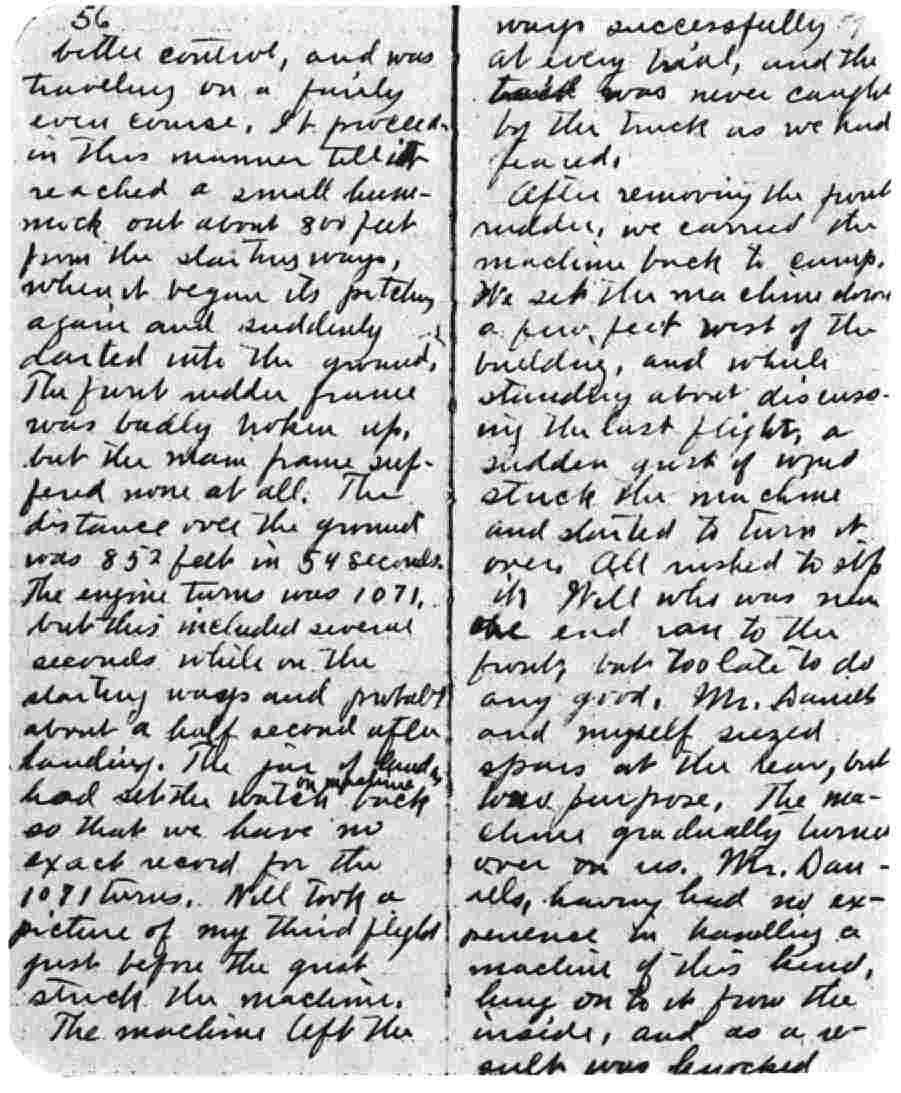 56
better control, and was
traveling on a fairly
even course. It proceed-
in this manner till it
reached a small hum-
mock out about 800 feet
from the starting ways,
when it began its pitching
again and suddenly
darted into the ground.
The front rudder frame
was badly broken up,
but the main frame suf-
fered none at all. The
distance over the ground
was 852 feet in 59 seconds.
The engine turns was 1071,
but this included several
seconds while on the
starting ways and probably
about a half second after
landing. The jar of landing
had set the watch on machine back
so that we have no
exact record for the
1071 turns. Will took a
picture of my third flight
just before the gust
struck the machine.
The machine left the
ways successfully
at every trial, and the
was never caught
by the truck as we had
feared.
After removing the front
rudder, we carried the
machine back to camp.
We set the machine down
a few feet west of the
building, and while
standing about discuss-
ing the last flight, a
sudden gust of wind
struck the machine
and started to turn it
over. All rushed to stop
it. Will who was near
the end ran to the
front, but too late to do
any good. Mr. Daniels
and myself seized
spars at the rear, but
to no purpose. The ma-
chine gradually turned
over on us. Mr. Dan-
iels, having had no ex-
perience in handling a
machine of this kind,
hung on to it from the
inside, and as a re-
sult was knocked